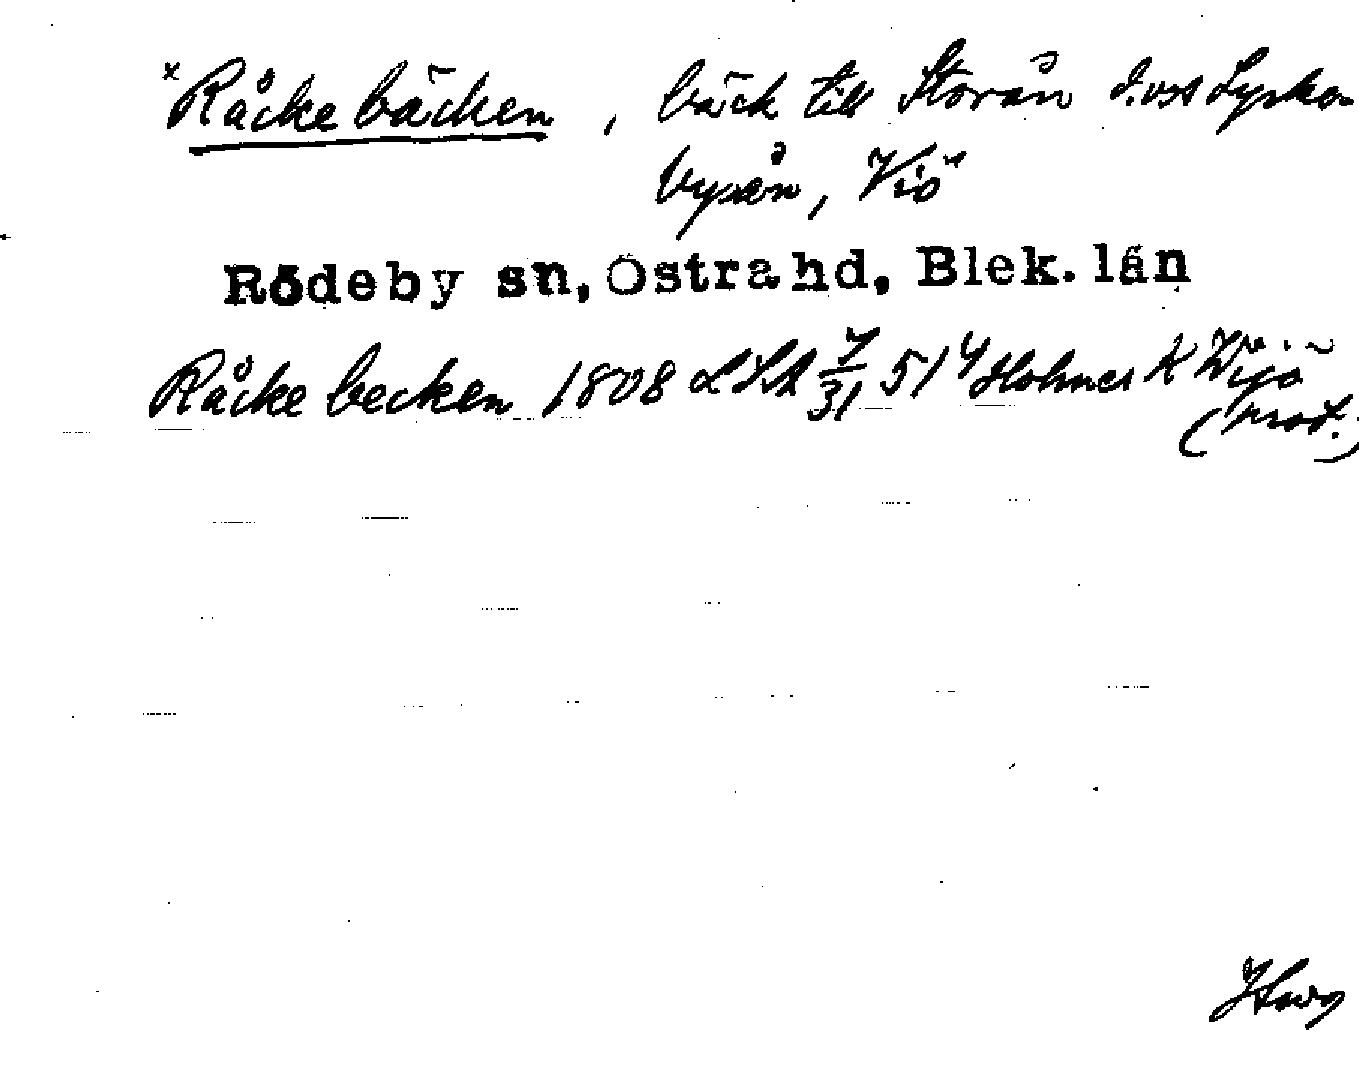 x Råckebäcken, bäck till Storån d.vss Lycka-
byån, Viö
Rödeby sn, Östra hd, Blek. län
Råcke becken 1808 LSA 7/31 51 4 Holmar K Wijö
(prot.)